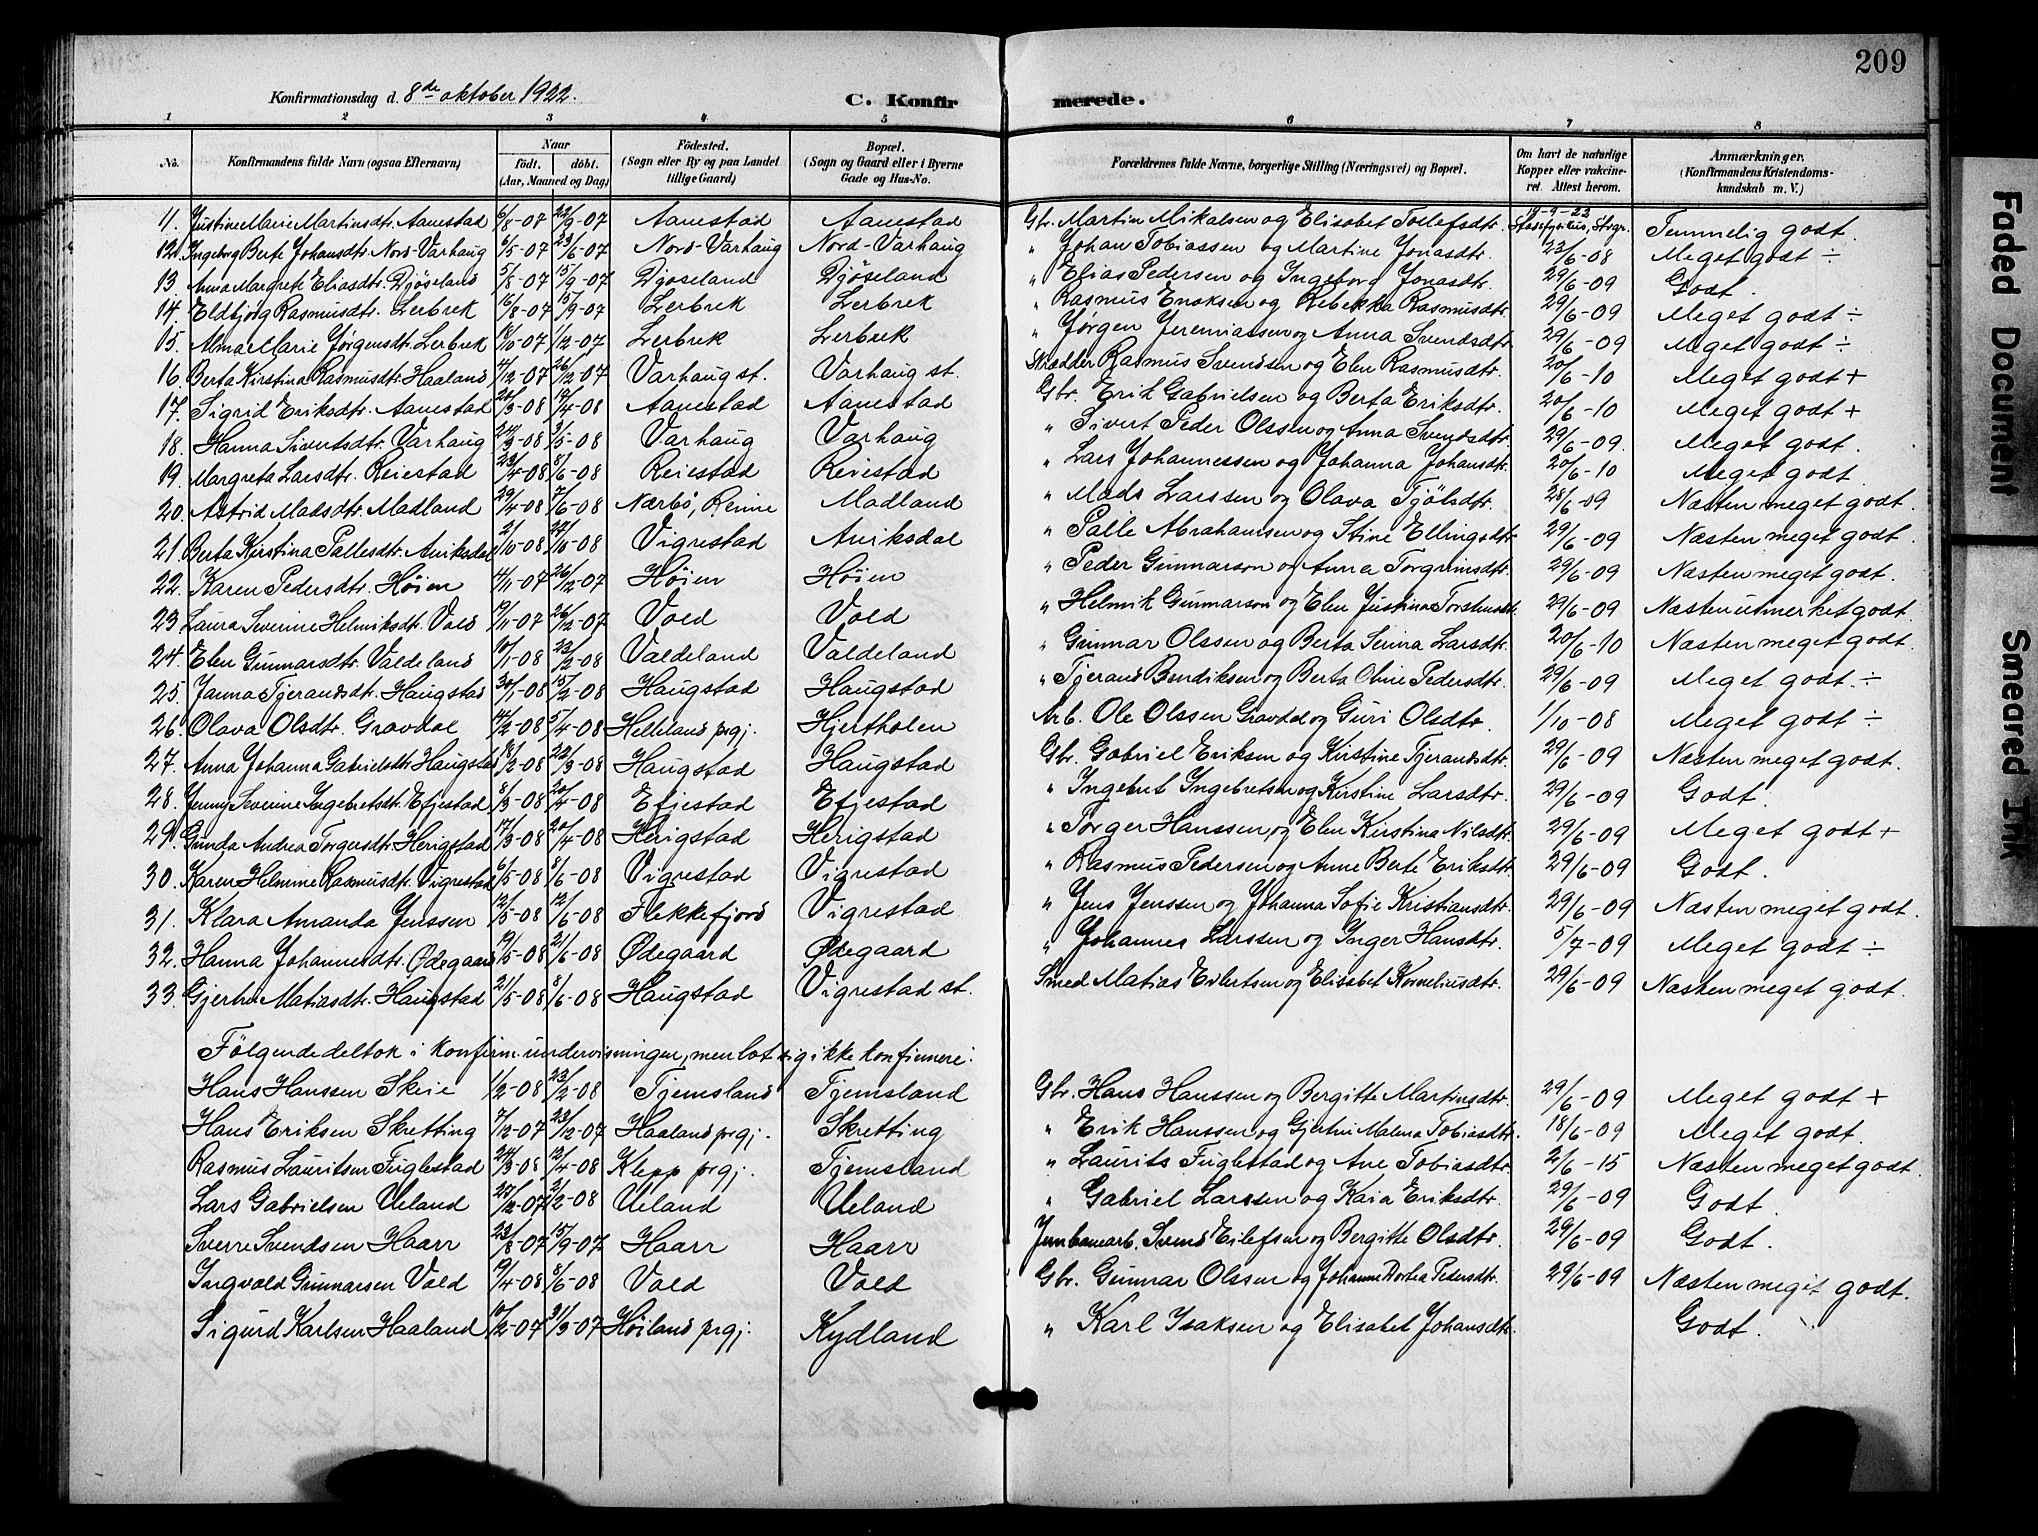 209
Konfirmationsdag d. 8de oktober 1922.
C. Konfirmerede.
1 2 3 4 5 6 7 8
No. Konfirmandens fulde Navn (ogsaa Efternavn) Naar født. døbt. (Aar, Maaned og Dag) Fødested. (Sogn eller By og paa Landet tillige Gaard) Bopæl. (Sogn og Gaard eller i Byerne Gade og Hus-No. Forældrenes fulde Navne, borgerlige Stilling (Næringsvei) og Bopæl. Om havt de naturlige Kopper eller vakcineret. Attest herom. Anmærkninger. (Konfirmandens Kristendomskundskab m. V.)
11. Justine Marie Martinsdtr. Aanestad 6/8-07 22/9-07 Aanestad Aanestad Gbr. Martin Mikalsen og Elisabet Tollefsdtr. 19-9-22 Temmelig godt.
12. Ingeborg Berte Johansdtr. Nord-Varhaug /5-07 23/6-07 Nord-Varhaug Nord-Varhaug " Johan Tobiassen og Martine Jonasdtr. 23/6-08 Meget godt ÷
13. Anna Margrete Eliasdtr. Djøseland 5/8-07 15/9-07 Djøseland Djøseland " Elias Pedersen og Ingeborg Jonasdtr. 29/6-09 Godt.
14. Eldbjørg Rasmusdtr. Lerbrek 16/8-07 15/9-07 Lerbrek Lerbrek " Rasmus Enoksen og Rebekka Rasmusdtr. 29/6-09 Meget godt ÷
15. Alma Marie Jørgensdtr. Lerbrek 18/10-07 1/12-07 Lerbrek Lerbrek " Jørgen Jeremiassen og Anna Svendsdtr. 29/6-09 Meget godt ÷
16. Berta Kirstina Rasmusdtr. Haaland 4/12-07 26/12-07 Varhaug st. Varhaug st. Skrædder Rasmus Svendsen og Elen Rasmusdtr. 20/6-10 Meget godt +
17. Sigrid Eriksdtr. Aanestad 20/3-08 19/4-08 Aanestad Aanestad Gbr. Erik Gabrielsen og Berta Eriksdtr. 20/6-10 Meget godt +
18. Hanna Sivertsdtr. Varhaug 24/3-08 3/5-08 Varhaug Varhaug " Sivert Peder Olssen og Anna Svendsdtr. 29/6-09. Meget godt.
19. Margreta Larsdtr. Reiestad 23/4-08 8/6-08 Reiestad Reiestad " Lars Johannessen og Johanna Johansdtr. 20/6-10 Meget godt.
20. Astrid Madsdtr. Madland 29/4-08 7/6-08 Nærbø, Reime Madland " Mads Larssen og Olava Tjølsdtr. 28/6-09 Næsten meget godt.
21. Berta Kirstina Pallesdtr. Aniksdal 2/10-08 27/10-08 Vigrestad Aniksdal " Palle Abrahamsen og Stine Ellingsdtr. 29/6-09 Næsten meget godt.
22. Karen Pedersdtr. Høien 4/11-07 26/12-07 Høien Høien " Peder Gunnarson og Anna Torgrimsdtr. 29/6-09 Næsten meget godt.
23. Laura Severine Helmiksdt. Vold 19/11-07 26/12-07 Vold Vold " Helmik Gunnarson og Elen Justina Torstensdt. 29/6-09 Næsten utmerket godt.
24. Elen Gunnarsdtr. Valdeland 10/1-08 23/2-08 Valdeland Valdeland " Gunnar Olssen og Berta Serina Larsdtr. 20/6-10 Næsten meget godt.
25. Janna Tjerandsdt. Haugstad 30/1-08 15/2-08 Haugstad Haugstad " Tjerand Bendiksen og Berta Oline Pedersdtr. 29/6-09 Meget godt ÷
26. Olava Olsdtr. Gravdal 14/2-08 5/4-08 Helleland prgj. Hjertholen Arb. Ole Olssen Gravdal og Guri Olsdtr. 1/10-08 Meget godt ÷
27. Anna Johanna Gabrielsdtr. Haugstad 18/2-08 22/3-08 Haugstad Haugstad Gbr. Gabriel Eriksen og Kirstine Tjerandsdtr. 29/6-09 Næsten meget godt.
28. Jenny Severine Ingebretsdt. Efjestad 8/3-08 20/4-08 Efjestad Efjestad " Ingebret Ingebretsen og Kirstine Larsdtr. 29/6-09 Godt.
29. Gunda Andrea Torgersdtr. Herigstad 17/3-08 20/4-08 Herigstad Herigstad " Torger Hanssen og Elen Kirstina Nilsdtr. 29/6-09 Meget godt +
30. Karen Helmine Rasmusdt. Vigrestad 6/5-08 8/6-08 Vigrestad Vigrestad " Rasmus Pedersen og Anne Berte Eriksdtr. 29/6-09 Godt.
31. Klara Amanda Jenssen 12/5-08 12/6-08 Flekkefjord Vigrestad " Jens Jenssen og Johanna Sofie Kristiansdtr. 29/6-09 Næsten meget godt.
32. Hanna Johannesdtr. Ødegaard 19/5-08 21/6-08 Ødegaard Ødegaard " Johannes Larssen og Inger Hansdtr. 5/7-09 Meget godt ÷
33. Gjertru Matiasdtr. Haugstad 21/5-08 8/6-08 Haugstad Vigrestad st. Smed Matias Eilertsen og Elisabet Korneliusdtr. 29/6-09 Næsten meget godt.
Følgende deltok i konfirm.undervisningen, men lot sig ikke konfirmere:
Hans Hanssen Skeie 1/2-08 23/2-08 Tjemsland Tjemsland Gbr. Hans Hanssen og Bergitte Martinsdtr. 29/6-09 Meget godt +
Hans Eriksen Skretting 7/12-07 23/12-07 Haaland prgj. Skretting " Erik Hanssen og Gjertru Malena Tobiasdtr. 18/6-09 Meget godt.
Rasmus Lauritsen Fuglestad 24/3-08 12/4-08 Klepp prgj. Tjemsland " Laurits Fuglestad og Ane Tobiasdtr. 2/6-15 Næsten meget godt.
Lars Gabrielsen Ueland 27/12-07 2/2-08 Ueland Ueland " Gabriel Larssen og Kaia Eriksdtr. 29/6-09 Godt.
Sverre Svendsen Haarr 23/8-07 15/9-07 Haarr Haarr Jernbanearb. Svend Eilefsen og Bergitte Olsdtr. 29/6-09 Godt.
Ingvald Gunnarsen Vold 19/4-08 8/6-08 Vold Vold Gbr. Gunnar Olssen og Johanne Dortea Pedersdtr. 29/6-09 Næsten meget godt.
Sigurd Karlsen Haaland 10/2-07 31/3-07 Høiland prgj. Kydland " Karl Isaksen og Elisabet Johansdtr. Godt.
Faded Document
Smeared Ink